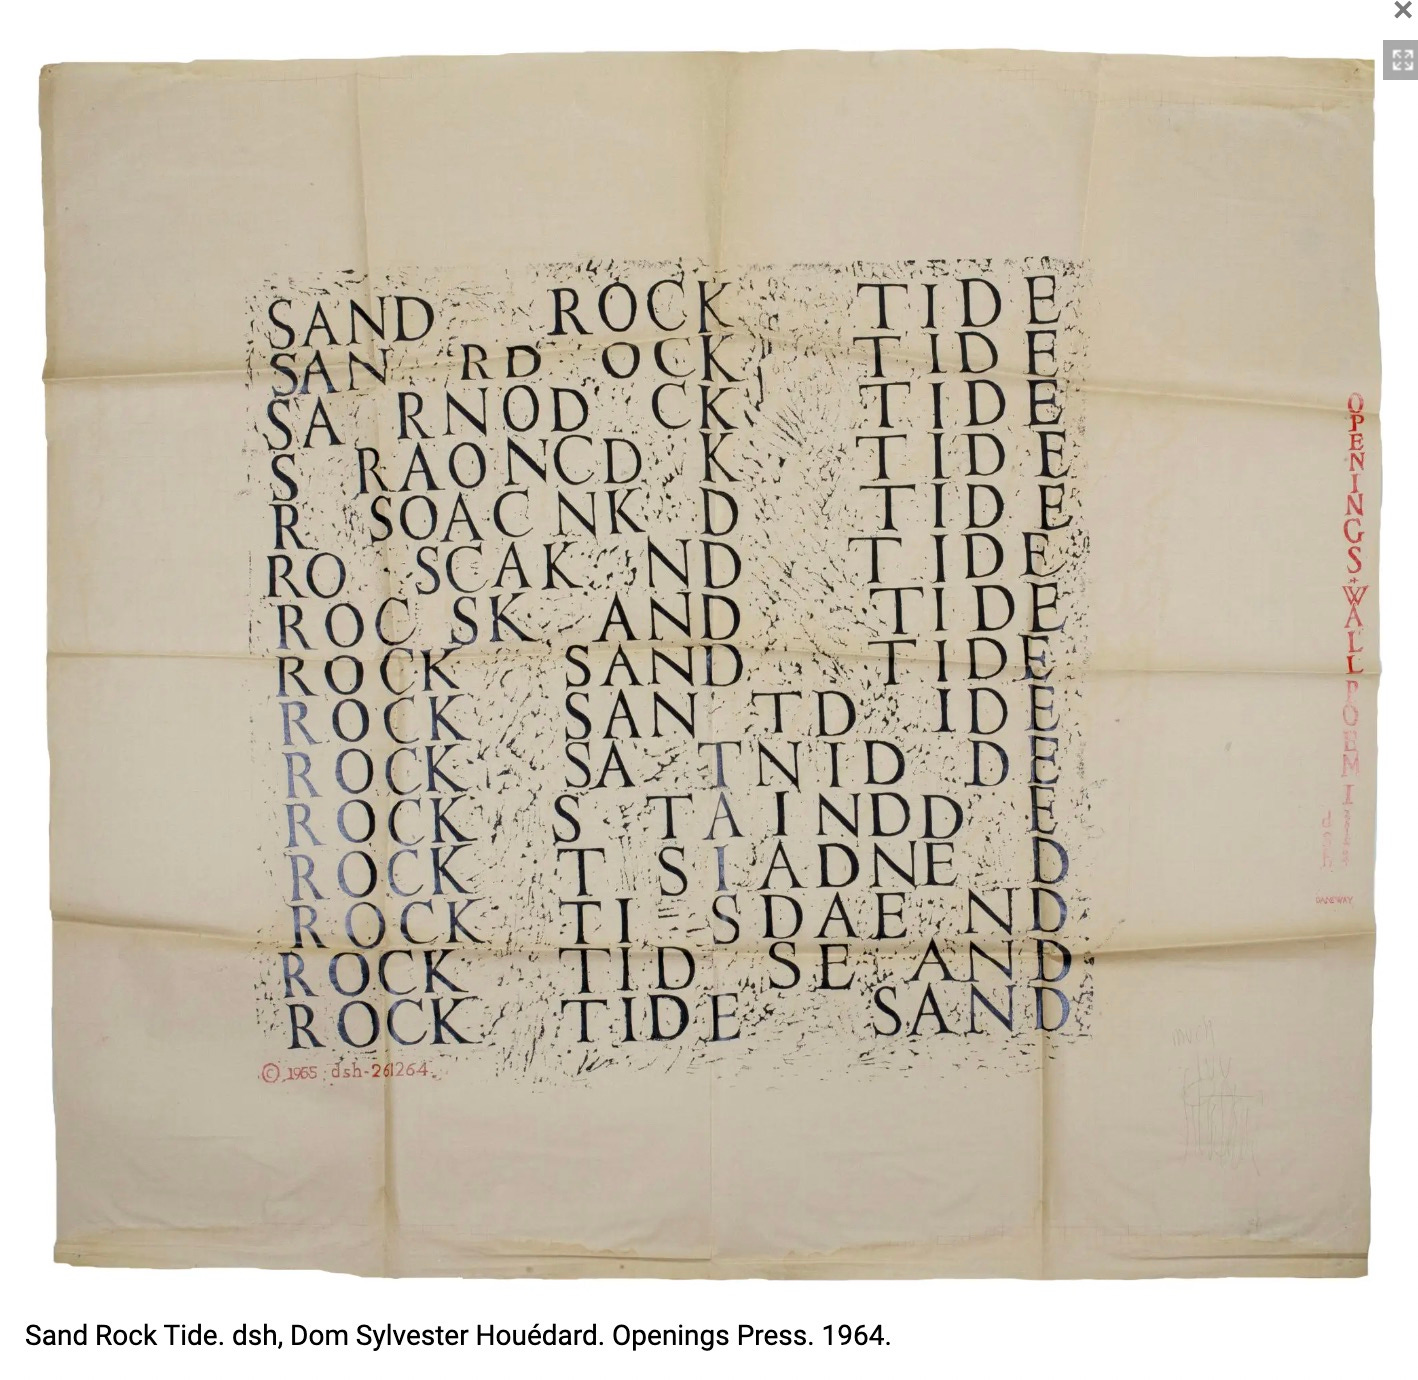 SAND ROCK TIDE
SAN RD OCK TIDE
SA RNOD CK TIDE
S RAONCD K TIDE
R SOACNK D TIDE
RO SCAK ND TIDE
ROC SK AND TIDE
ROCK SAND TIDE
ROCK SAN TD IDE
ROCK SA TNID DE
ROCK S TAINDD E
ROCK T SIADNE D
ROCK TI SDAE ND
ROCK TID SE AND
ROCK TIDE SAND
© 1965 dsh-261264
OPENINGS WALL POEM
Sand Rock Tide. dsh, Dom Sylvester Houédard. Openings Press. 1964.